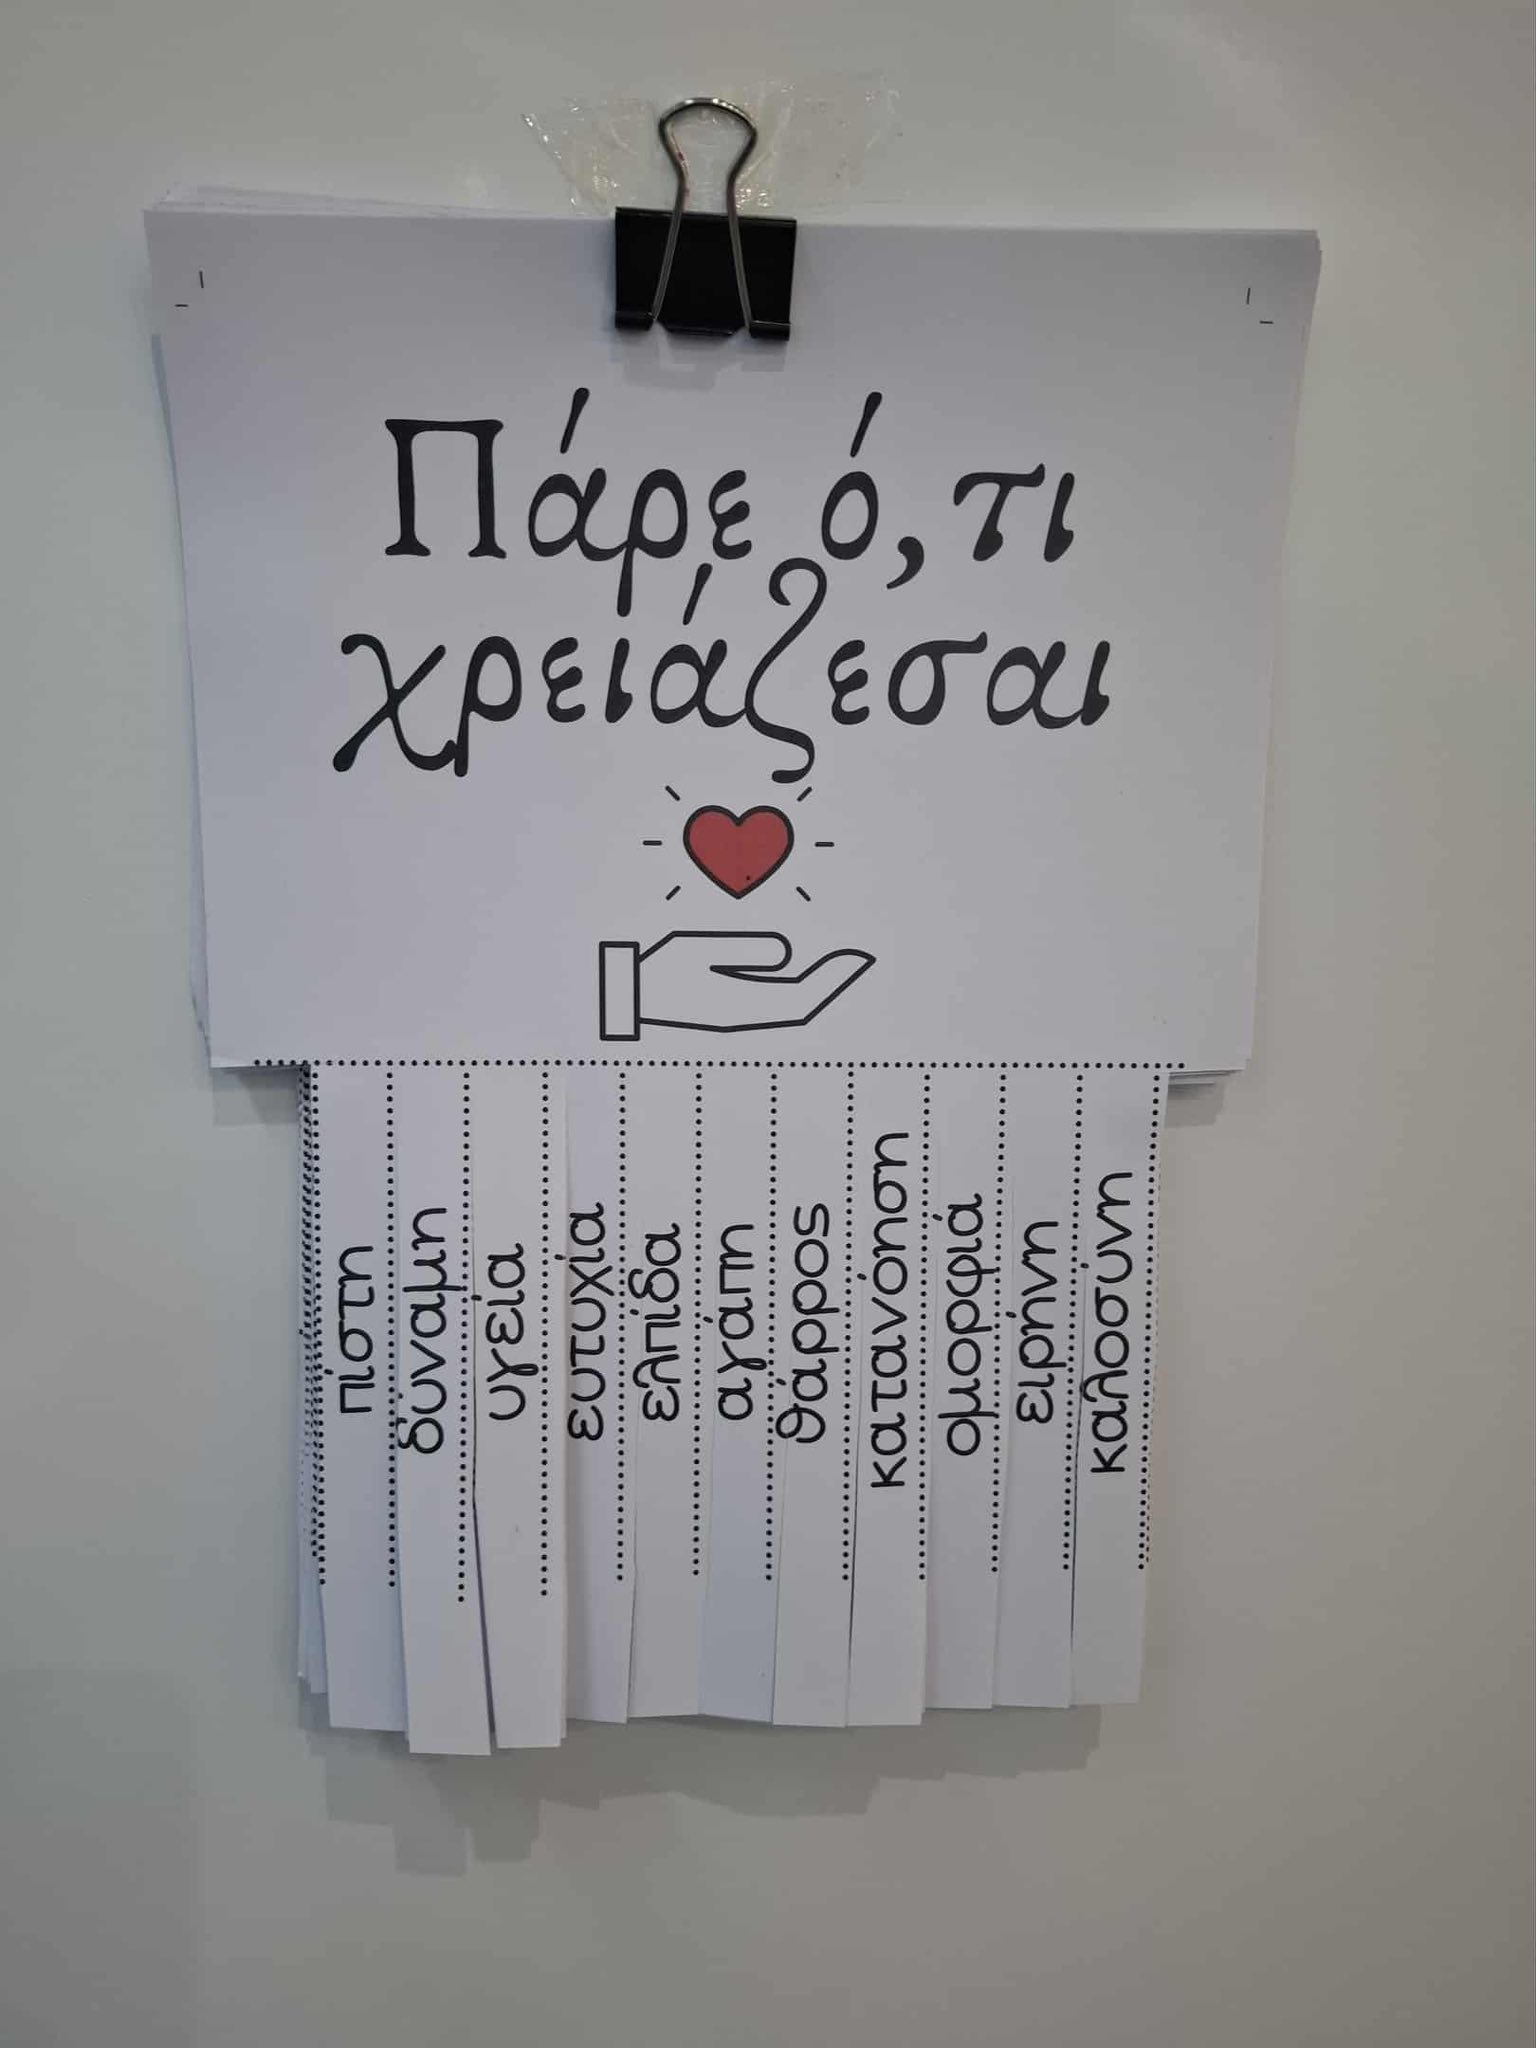 Πάρε ό,τι
χρειάζεσαι
πίστη
δύναμη
υγεία
ευτυχία
ελπίδα
αγάπη
θάρρος
κατανόηση
ομορφιά
ειρήνη
καλοσύνη